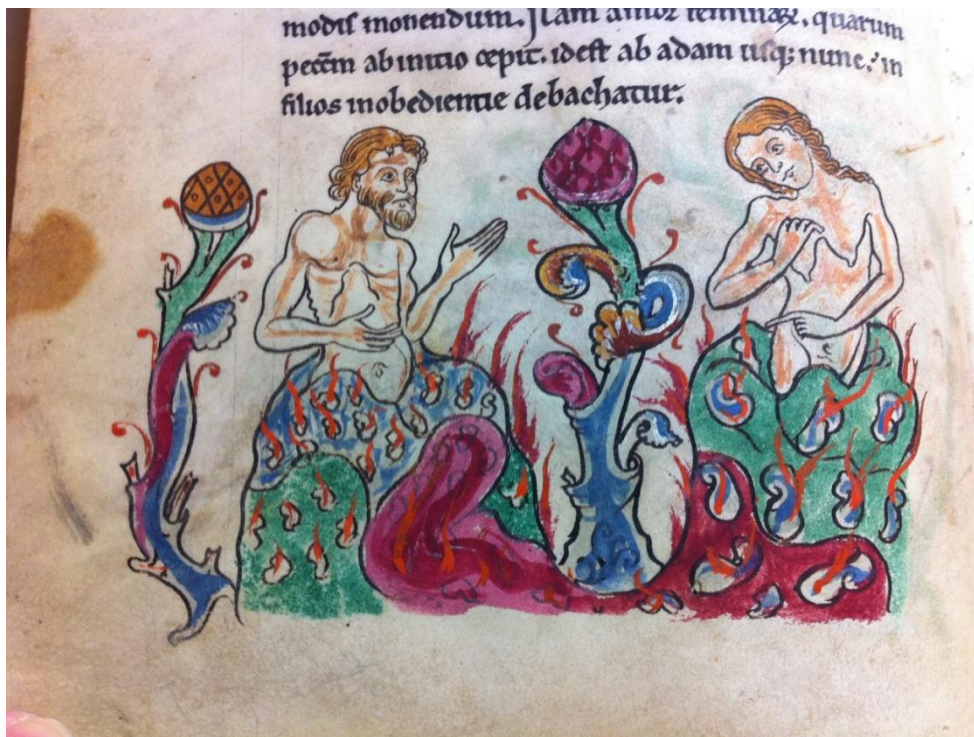 modis monendum. Nam amor feminaꝝ, quarum
peccm̄ ab initio cepit. idest ab adam usq; nunc. in
filios inobedientie debachatur.